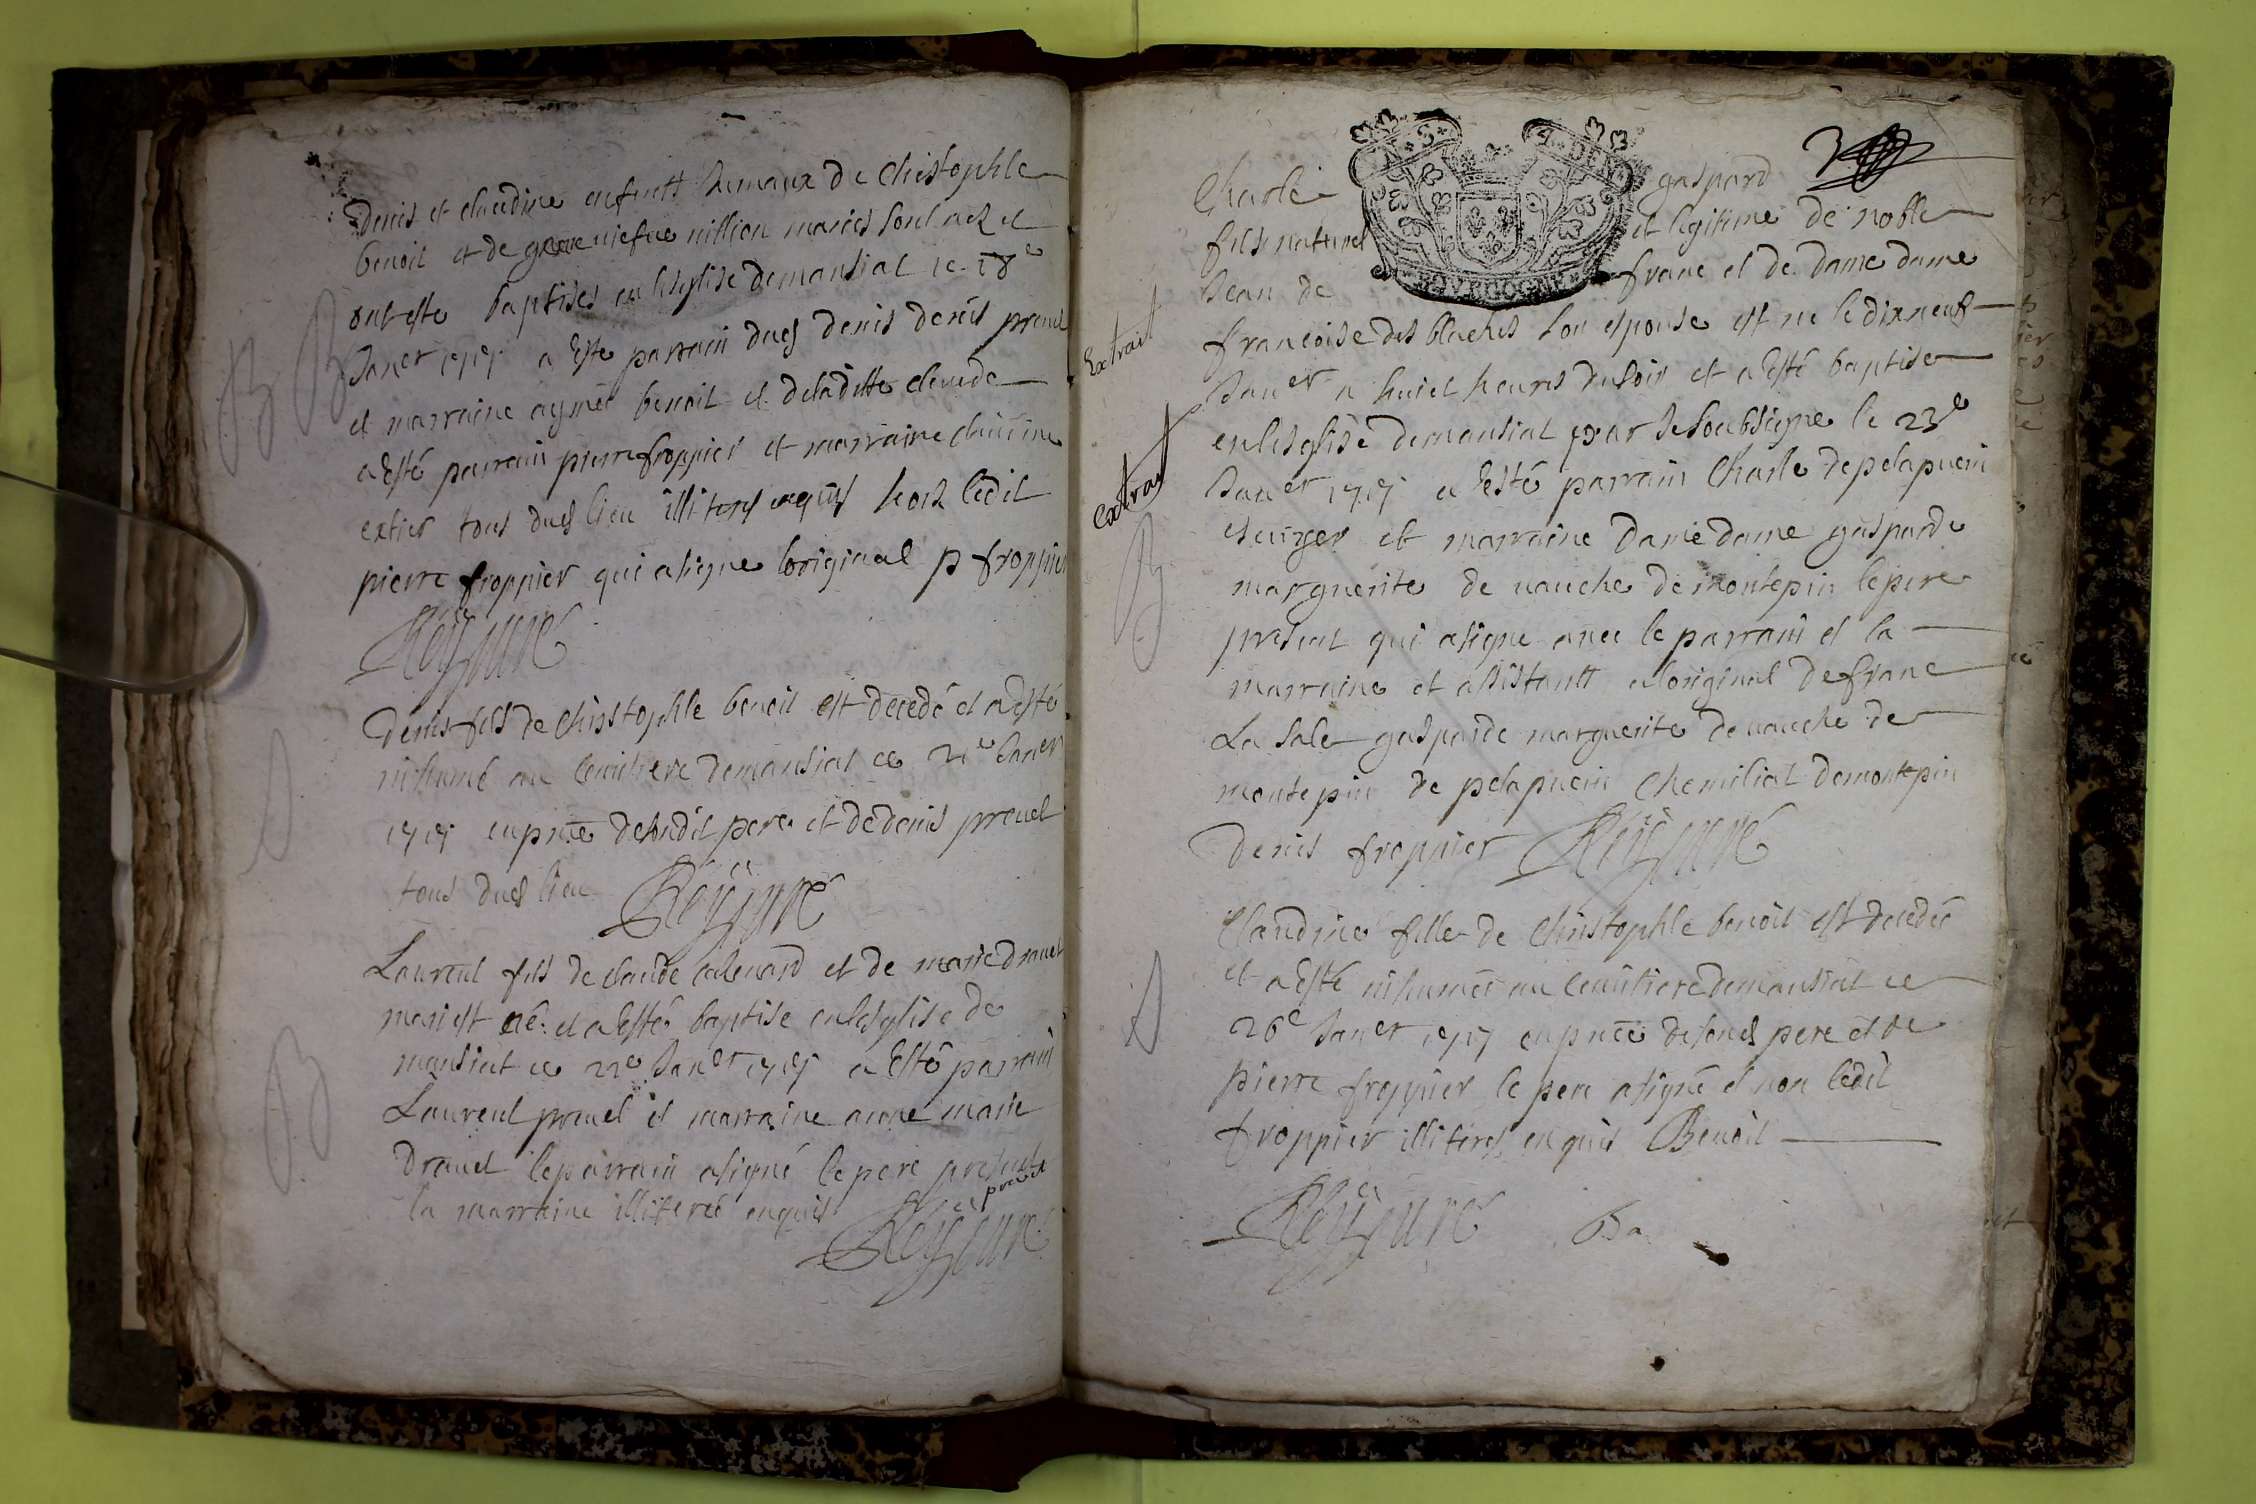 Denis et claudine enfantt Jumaux de Christophle
benoit et de geneviefve million mariés sont nez et
ont esté baptisés en lesglise demansiat le 18e
Janer 1717 a Esté parrain dud denis denis prevel
et marraine aymée benoit et deladitte claude
a Esté parrain pierre froppier et marraine claudine
extier tous dud lieu illiterés enquis hors ledit
pierre froppier qui asigne loriginal p froppier
Reÿjure
denis fils de Christophle benoit est decedé et a esté
inhumé au cemitiere demansiat ce 21e Janer
1717 en pnce desondit pere et dedenis prevel
tous dud lieu Reÿjure
Laurent fils de claude calenard et de marie dravet
mari est né et a Esté baptise en lesglise de
mansiat ce 22e Janer 1717 a Esté parrain
Laurent prevel et marraine anne marie
dravet leparrain asigné le pere present
la marraine illiterée enquis
Reÿjure
Charle gaspard
fils naturel et legitime de noble
Jean de franc et de dame dame
BOVRGOGNE
francoise des blaches son espouse est ne le dixneuf
Janer a huict heures du soir et a Esté baptise
en lesglise demansiat par Je soubsigne le 23e
Janer 1717 a Esté parrain Charle de pelapucin
escuyer et marraine dame dame gasparde
marguerite de vauche de montepin le pere
present qui asigne avec le parrain et la
marraine et assistantt a loriginal defranc
La sale gasparde marguerite devauche de
montepin de pelapucin Chemiliat demontepin
denis froppier Reÿjure
Extrait
extrait
Claudine fille de Christophle benoit est decedée
et a Esté inhumée au cemitiere demansiat ce
26e Janer 1717 en pnce desond pere et de
pierre froppier le pere asigné et non ledit
froppier illiteres enquis Benoit
Reÿjure